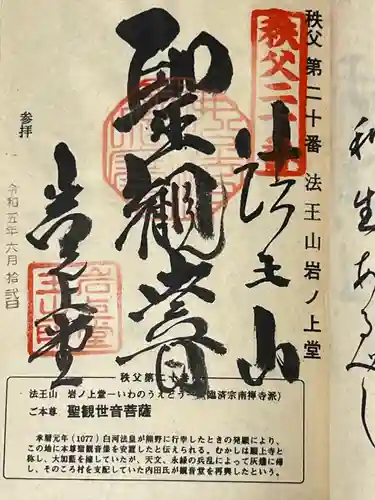 秩父第二十番 法王山岩ノ上堂
秩父二十番
法王山
聖観音
岩上堂
参拝
令和五年六月拾弐日
秩父第二十番
法王山 岩ノ上堂―いわのうえどう―(臨済宗南禅寺派)
ご本尊 聖観世音菩薩
承暦元年(1077)白河法皇が熊野に行幸したときの発願により、
この地に本尊聖観音像を安置したと伝えられる。むかしは巌上寺と
称し、大加藍を擁していたが、天文、永禄の兵乱によって灰燼に帰
し、そのころ村を支配していた内田氏が観音堂を再興したという。